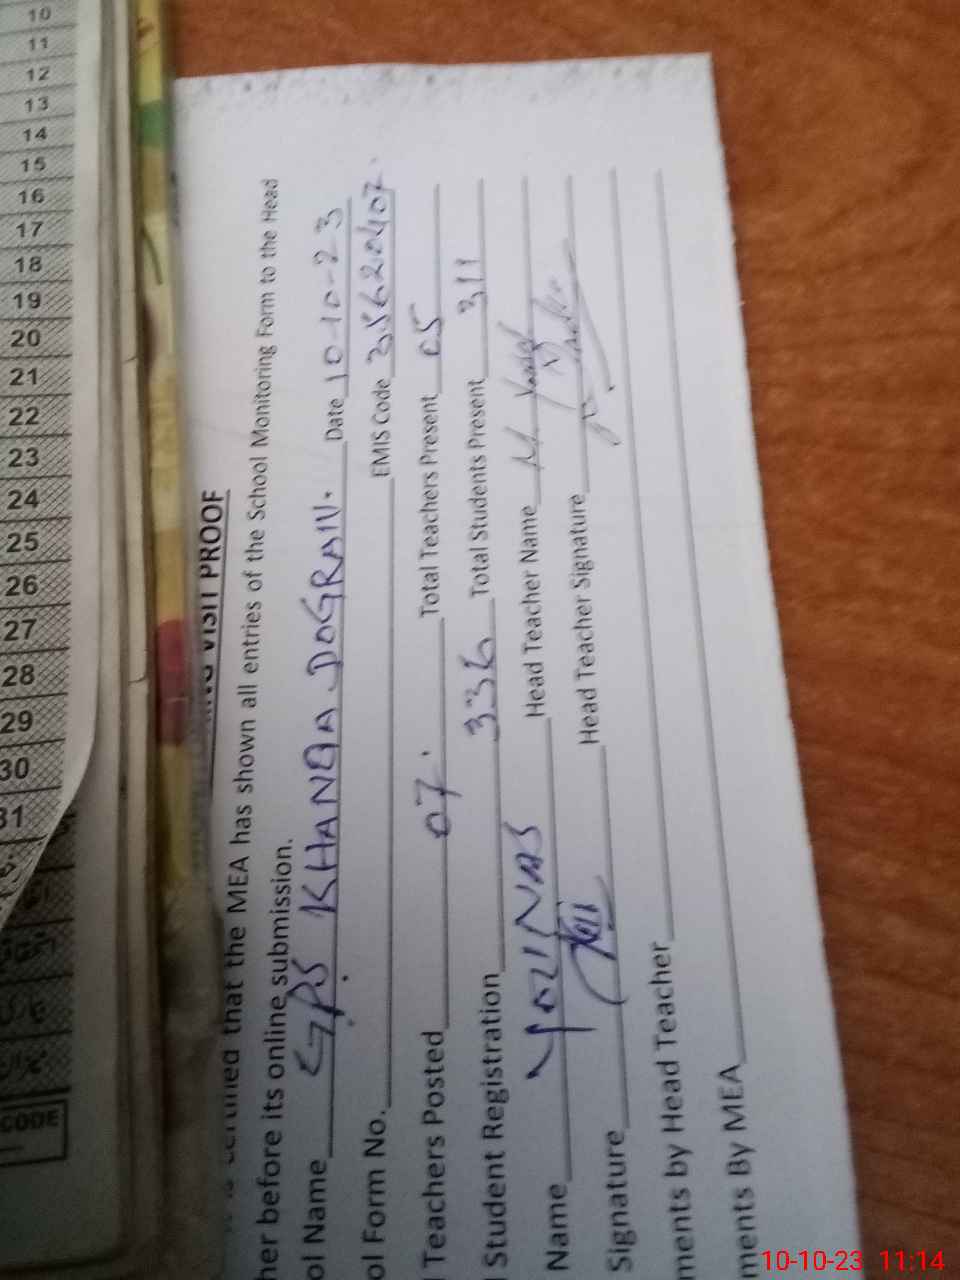 10
11
12
13
14
15
16
17
18
19
20
21
22
23
24
25
26
27
28
29
30
31
CODE
VISIT PROOF
that the MEA has shown all entries of the School Monitoring Form to the Head
her before its online submission.
ol Name GPS KHANQA DOGRAN. Date 10-10-23
ol Form No. EMIS Code 35620407
l Teachers Posted 07. Total Teachers Present 05
l Student Registration 336 Total Students Present 311
Name Head Teacher Name M.
Signature Head Teacher Signature
ments by Head Teacher
ments By MEA
10-10-23 11:14